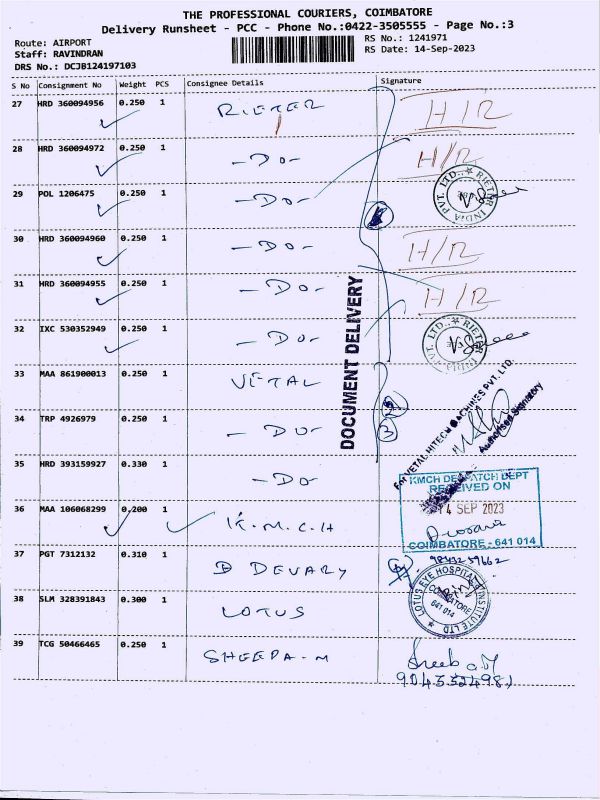 THE PROFESSIONAL COURIERS, COIMBATORE
Delivery Runsheet - PCC - Phone No.:0422-3505555 - Page No.:3
Route: AIRPORT
Staff: RAVINDRAN
DRS No.: DCJB124197103
RS No.: 1241971
RS Date: 14-Sep-2023
S No Consignment No Weight PCS Consignee Details Signature
27 HRD 360094956 0.250 1 RIETER H/R
28 HRD 360094972 0.250 1 -DO- H/R
29 POL 1206475 0.250 1 -DO-
RIETER INDIA PVT. LTD.
30 HRD 360094960 0.250 1 -DO- H/R
31 HRD 360094955 0.250 1 -DO- H/R
32 IXC 530352949 0.250 1 -DO-
RIETER INDIA PVT. LTD.
DOCUMENT DELIVERY
33 MAA 861900013 0.250 1 VETAL
34 TRP 4926979 0.250 1 -DO- 3
For VETAL HITECH MACHINES PVT. LTD.
Authorised Signatory
35 HRD 393159927 0.330 1 -DO-
36 MAA 106068299 0.200 1 K.M.C.H
KMCH DESPATCH DEPT
RECEIVED ON
4 SEP 2023
COIMBATORE - 641 014
37 PGT 7312132 0.310 1 DEVARY
38 SLM 328391843 0.300 1 LOTUS
LOTUS EYE HOSPITAL INSTITUTE LTD
COIMBATORE
641 014
39 TCG 50466465 0.250 1 SHEEPA-M Sheeba M